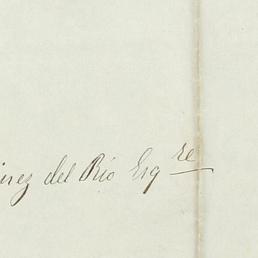 inez del Rio Esqre